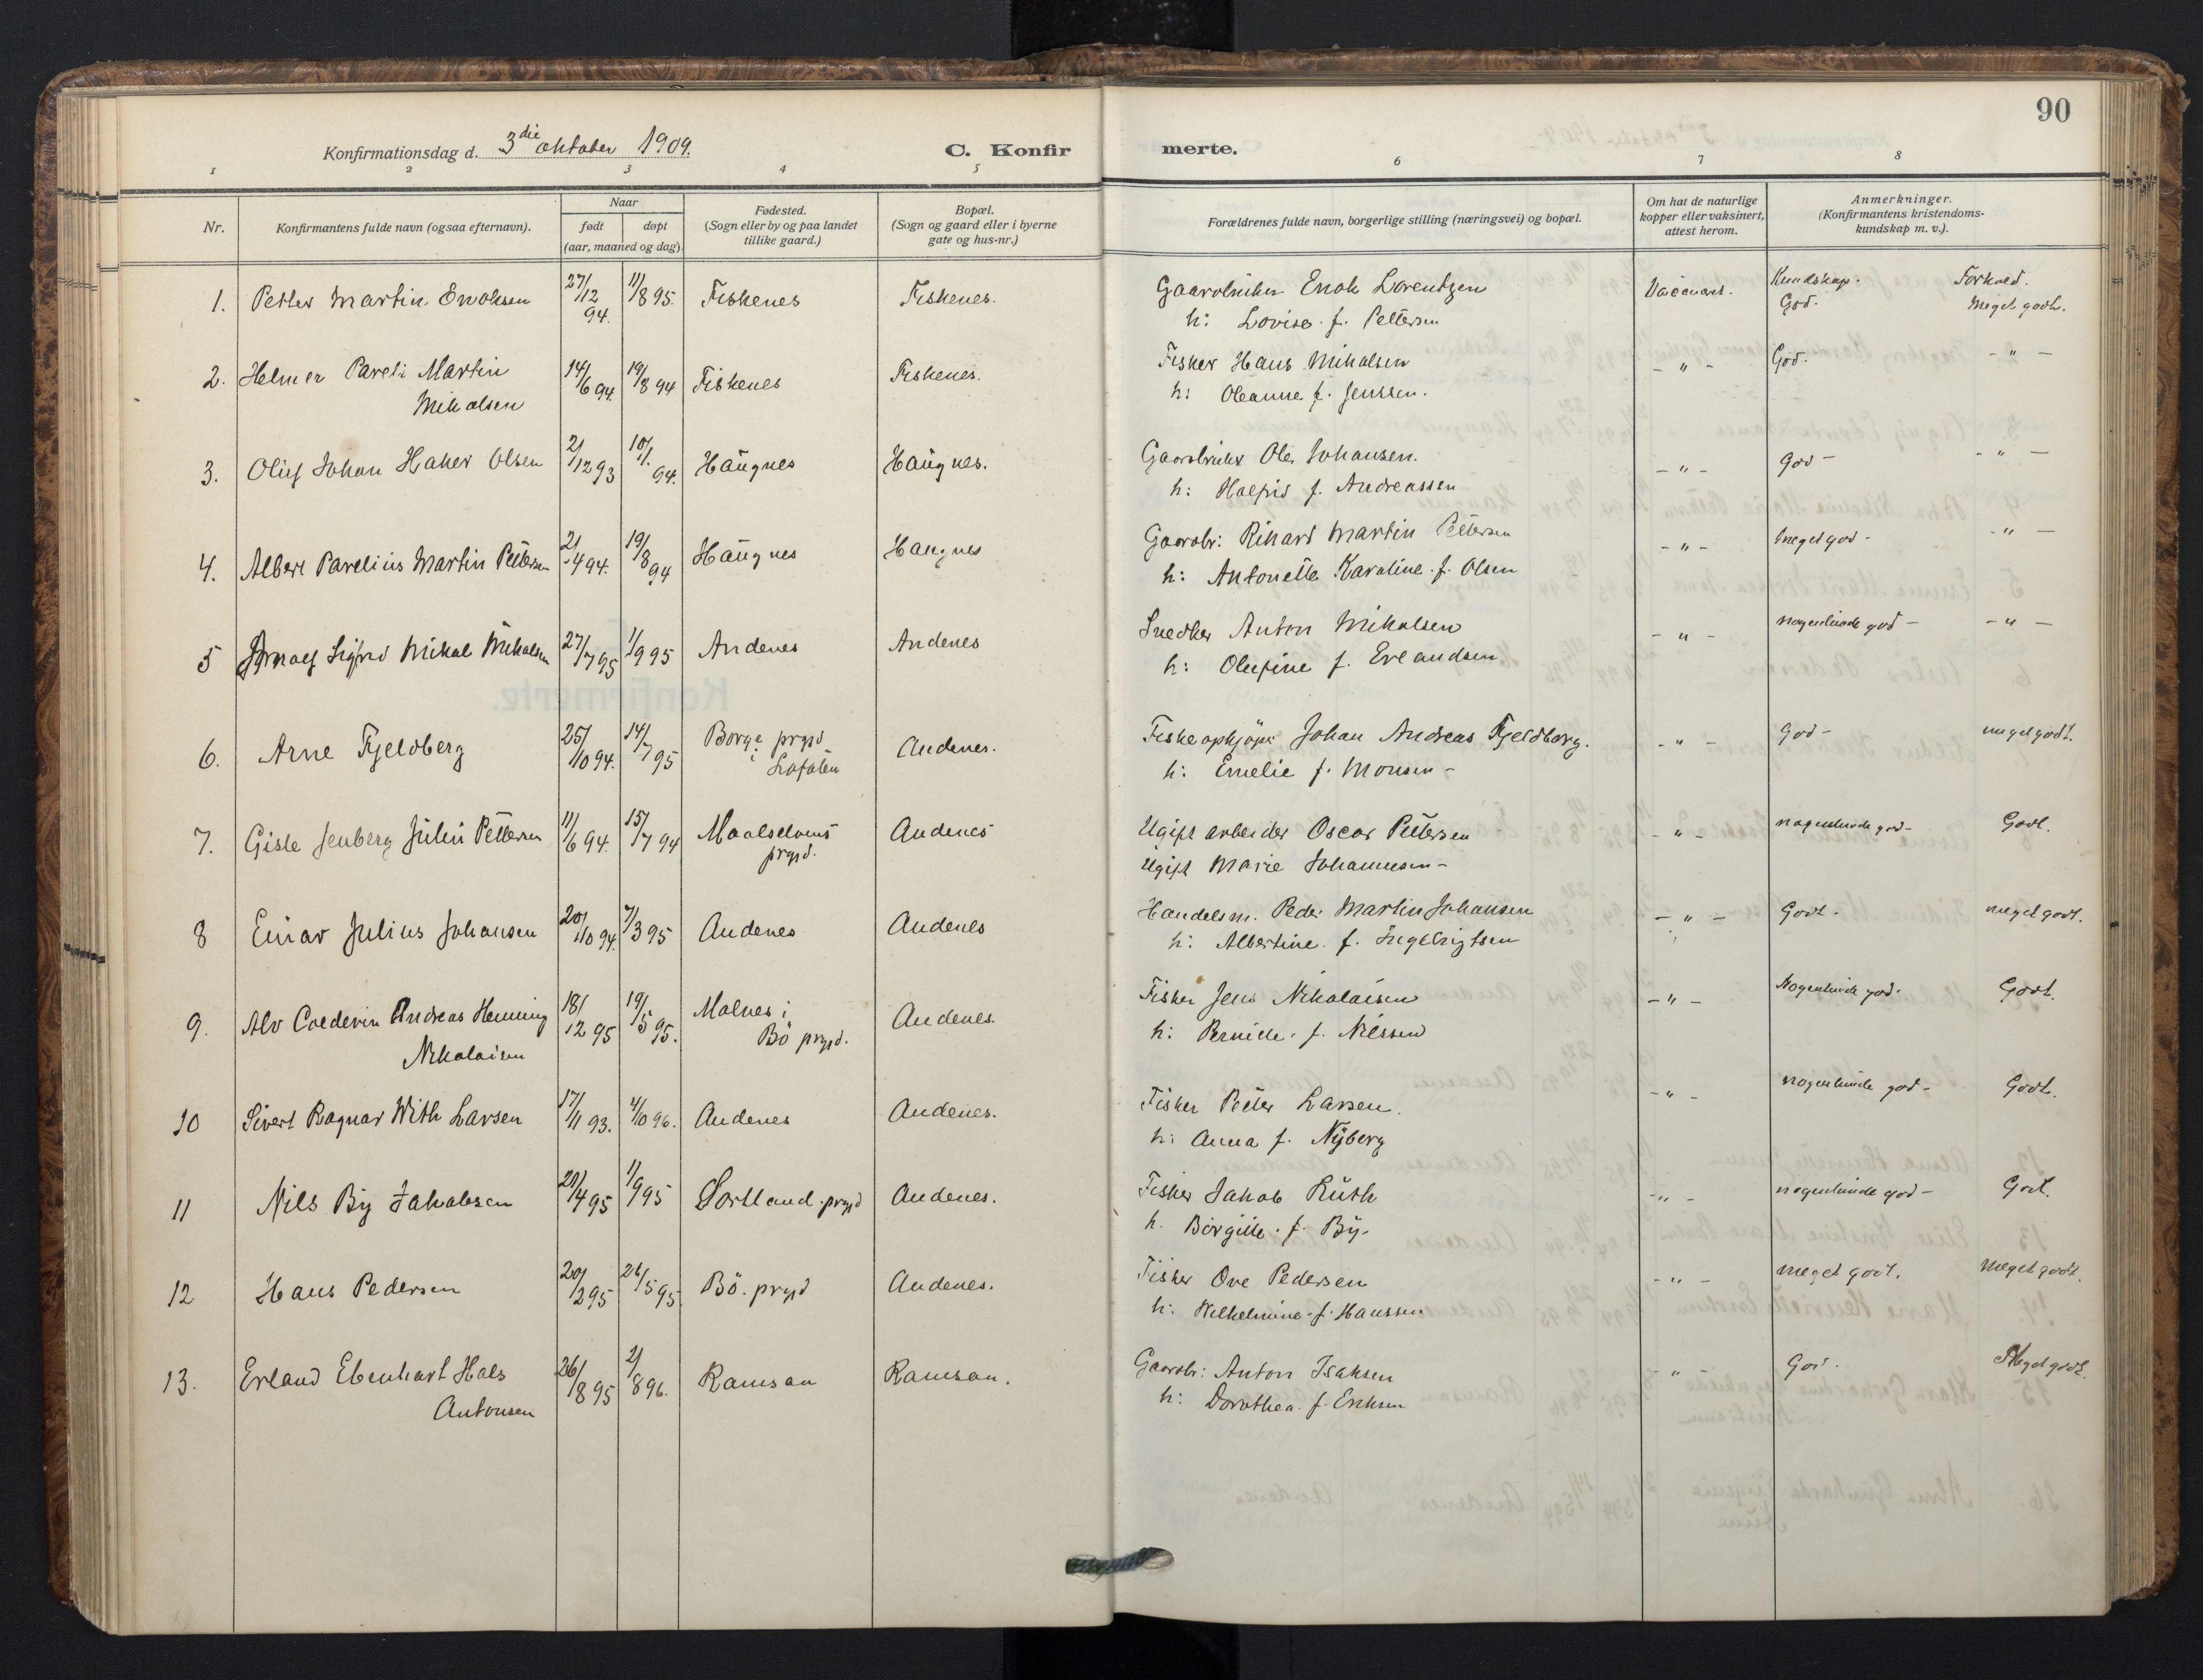 90
Konfirmationsdag d. 3die oktober 1909.
C. Konfir
merte.
1 2 3 4 5 6 7 8
Nr.
Konfirmantens fulde navn (ogsaa efternavn).
Naar
født døpt
(aar, maaned og dag).
Fødested.
(Sogn eller by og paa landet
tillike gaard.)
Bopæl.
(Sogn og gaard eller i byerne
gate og hus-nr.)
Forældrenes fulde navn, borgerlige stilling (næringsvei) og bopæl.
Om hat de naturlige
kopper eller vaksinert,
attest herom.
Anmerkninger.
(Konfirmantens kristendoms-
kundskap m. v.).
Kundskap. Forhold.
1. Petter Martin Enoksen 27/12 94. 11/8 95. Fiskenes Fiskenes. Gaardbruker Enok Lorentzen Vaccinert. God. Meget godt.
h: Lovise f. Pettersen
2. Helmer Pareli Martin 14/6 94. 19/8 94 Fiskenes Fiskenes. Fisker Hans Mikalsen - " - God. - " -
Mikalsen h: Oleanne f. Jenssen.
3. Oluf Johan Haker Olsen 2/12 93 10/1. 94. Haugnes Haugnes. Gaardbruker Ole Johansen. - " - God - - " -
h: f. Andreassen
4. Albert Parelius Martin Pettersen 2/4 94. 19/8 94 Haugnes Haugnes Gaardbr: Rikard Martin Pettersen - " - Meget god - - " -
h: Antonette Karoline f. Olsen
5 Sigurd Mikal Mikalsen 27/7 95 1/9 95 Andenes Andenes Snedker Anton Mikalsen - " - nogenlunde god - - " -
h: Olufine f. Erlandsen
6. Arne Fjeldberg 25/10 94. 14/7 95 Borge prgjd Andenes. Fiskeopkjøper Johan Andreas Fjeldberg. - " - God - meget godt.
i Lofoten h: Emelie f. Monsen -
7. Gisle Jenberg Julin Pettersen 11/6 94. 15/7 94 Maalselvens Andenes Ugift arbeider Oscar Pettersen - " - nogenlunde god - Godt.
prgjd. Ugift Marie Johannesen -
8 Einar Julius Johansen 20/10 94. 7/3 95 Andenes Andenes Handelsm. Peder Martin Johansen - " - Godt. meget godt.
h: Albertine f. Ingebrigtsen
9. Alv Coldevin Andreas Henning 18/12 95 19/5 95. Malnes i Andenes. Fisker Jens Nikolaisen - " - Nogenlunde god. Godt.
Nikolaisen Bø prgjd. h: Pernille f. Nilssen
10 Sivert Ragnar With Larsen 17/11 93. 4/10 96. Andenes Andenes. Fisker Peder Larsen. - " - nogenlunde god - Godt.
h: Anna f. Nyberg
11 Nils By Jakobsen 20/4 95 1/9 95 Sortland prgjd Andenes. Fisker Jakob Ruth - " - nogenlunde god - Godt.
h. Borgitte f. By -
12 Hans Pedersen 20/2 95 26/5 95. Bø. prgjd Andenes. Fisker Ove Pedersen - " - meget godt. meget godt.
h: Wilhelmine f. Hanssen
13. Erland Ebenhart Hals 26/8 95 2/8 96. Ramsaa Ramsaa. Gaardbr: Anton Isaksen - " - God. Meget godt.
Antonsen h: Dorothea f. Eriksen